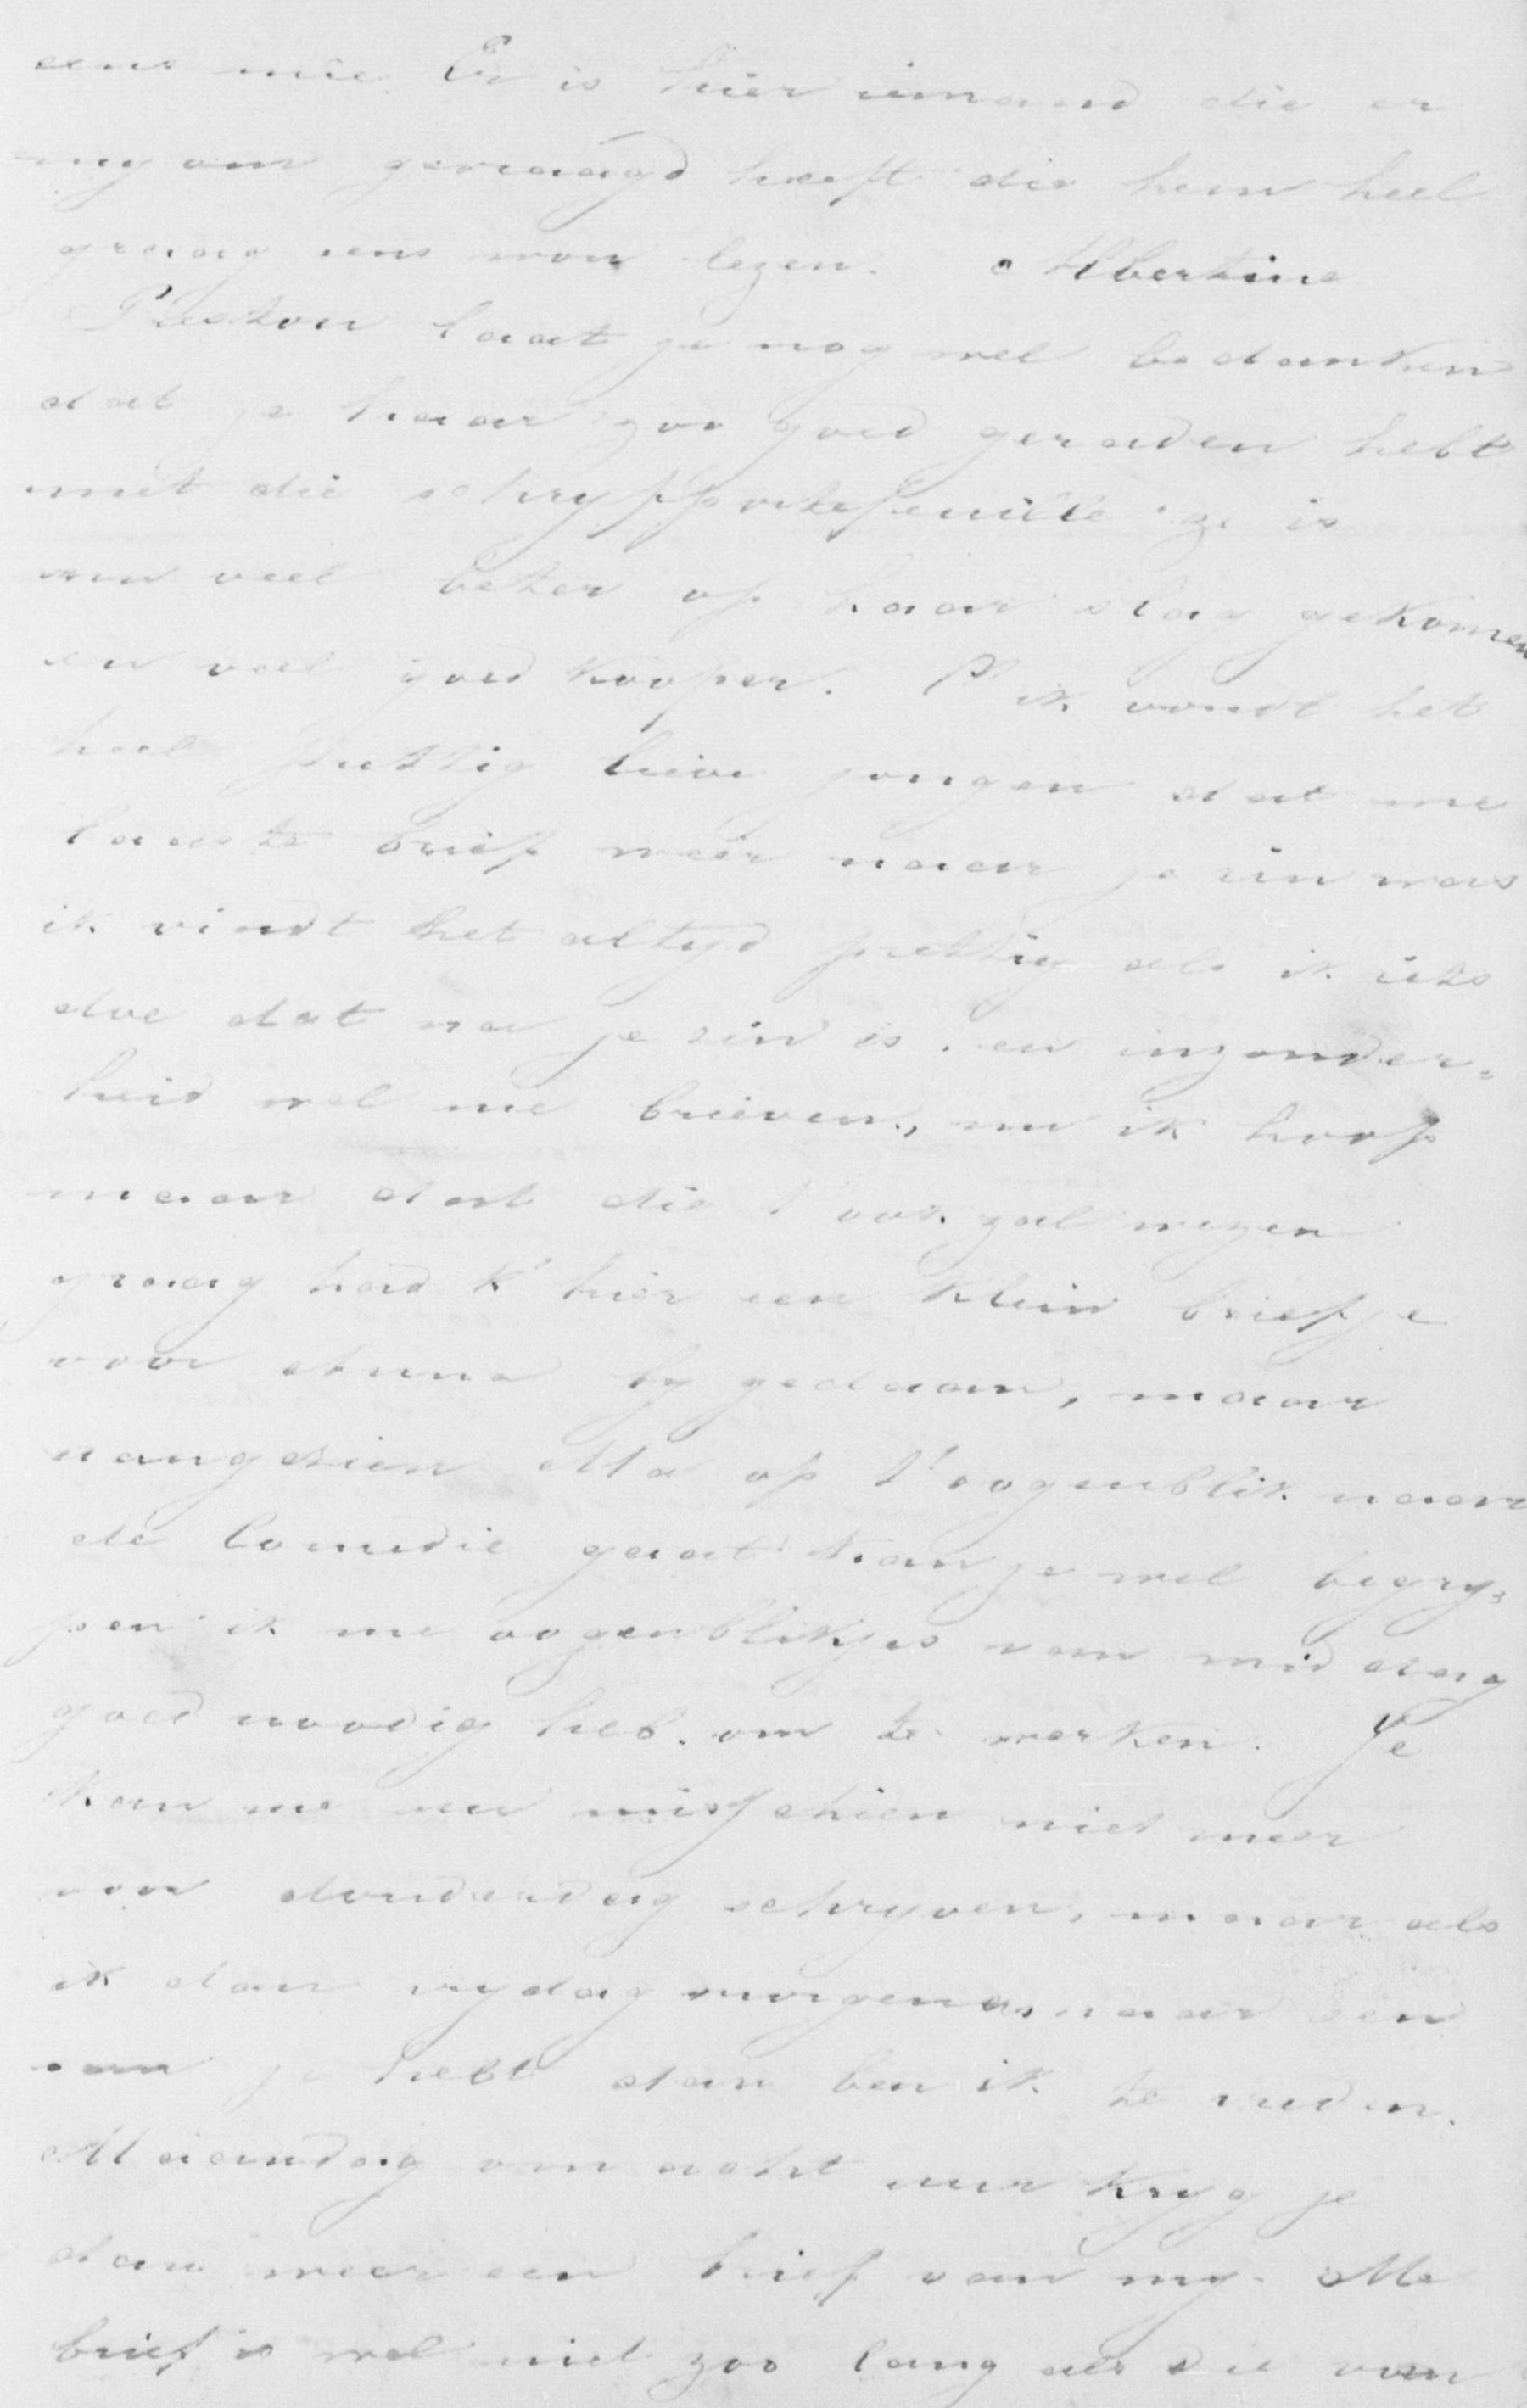 eens mee. Er is hier iemand die er
my om gevraagd heeft die hem heel
graag eens wou lezen. Albertine
laat je nog wel bedanken
dat je haar zoo goed geraden hebt
met die schryfportefeuille ze is
nu veel beter op haar slag gekomen
en veel goed kooper. ik vondt het
heel prettig lieve jongen dat me
laaste brief weer naar je zin was
ik vindt het altyd prettig als ik iets
doe dat na je zin is. en inzonder=
heid wel me brieven, nu ik hoop
maar dat die 't ook zal wezen
graag had k' hier een klein briefje
voor Anna by gedaan, maar
aangezien Ma op 't oogenblik naar
de Comedie gaat kan je wel begry=
pen ik me oogenblikjes van middag
goed noodig heb. om te werken. Je
kan me nu misschien niet meer
voor donderdag schryven, maar als
ik dan vrydag morgen maar een
van je hebt dan ben ik te vreden.
Maandag om acht uur kryg je
dan weer een brief van my. Me
brief is wel niet zoo lang als die van